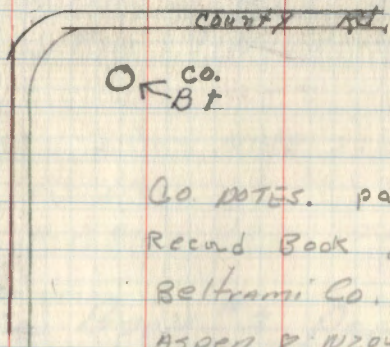 County Rd
Co.
Bt
Co NOTES. pa
Record Book
Beltrami Co.
Aspen